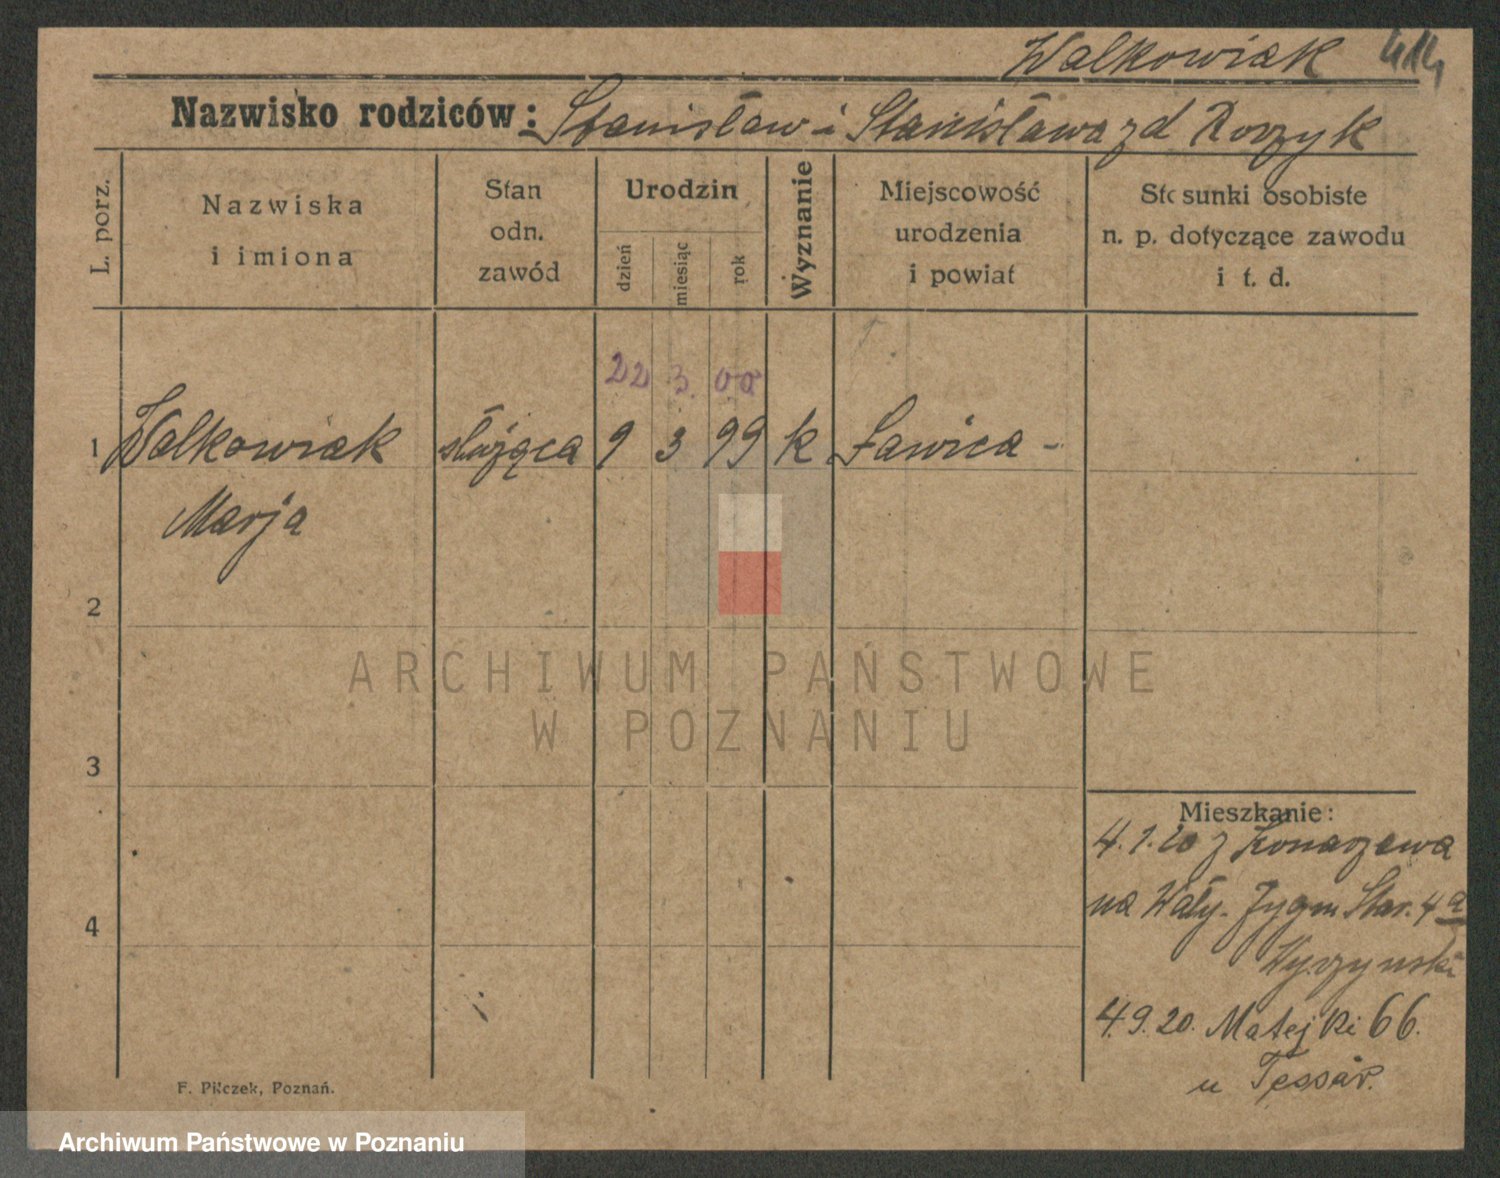 Walkowiak 414
Nazwisko rodziców: Stanisław i Stanisława zd Roszyk
L. porz.
Nazwiska
i imiona
Stan
odn.
zawód
Urodzin
dzień
miesiąc
rok
Wyznanie
Miejscowość
urodzenia
i powiat
Stosunki osobiste
n. p. dotyczące zawodu
i t. d.
22 3 00
1 Walkowiak służąca 9 3 99 k Ławica -
Marja
2
3
4
ARCHIWUM PAŃSTWOWE
W POZNANIU
Mieszkanie:
4.1.20 z Konarzewa
na Wały. Zygm Star. 4a
Wyszynski
4.9.20. Matejki 66.
u Tessar.
F. Pilczek, Poznań.
Archiwum Państwowe w Poznaniu